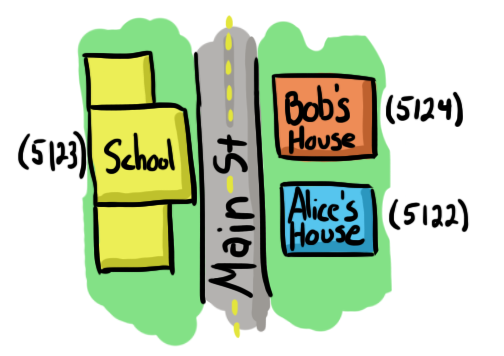 (5123)
School
Main St
Bob's
House
(5124)
Alice's
House
(5122)